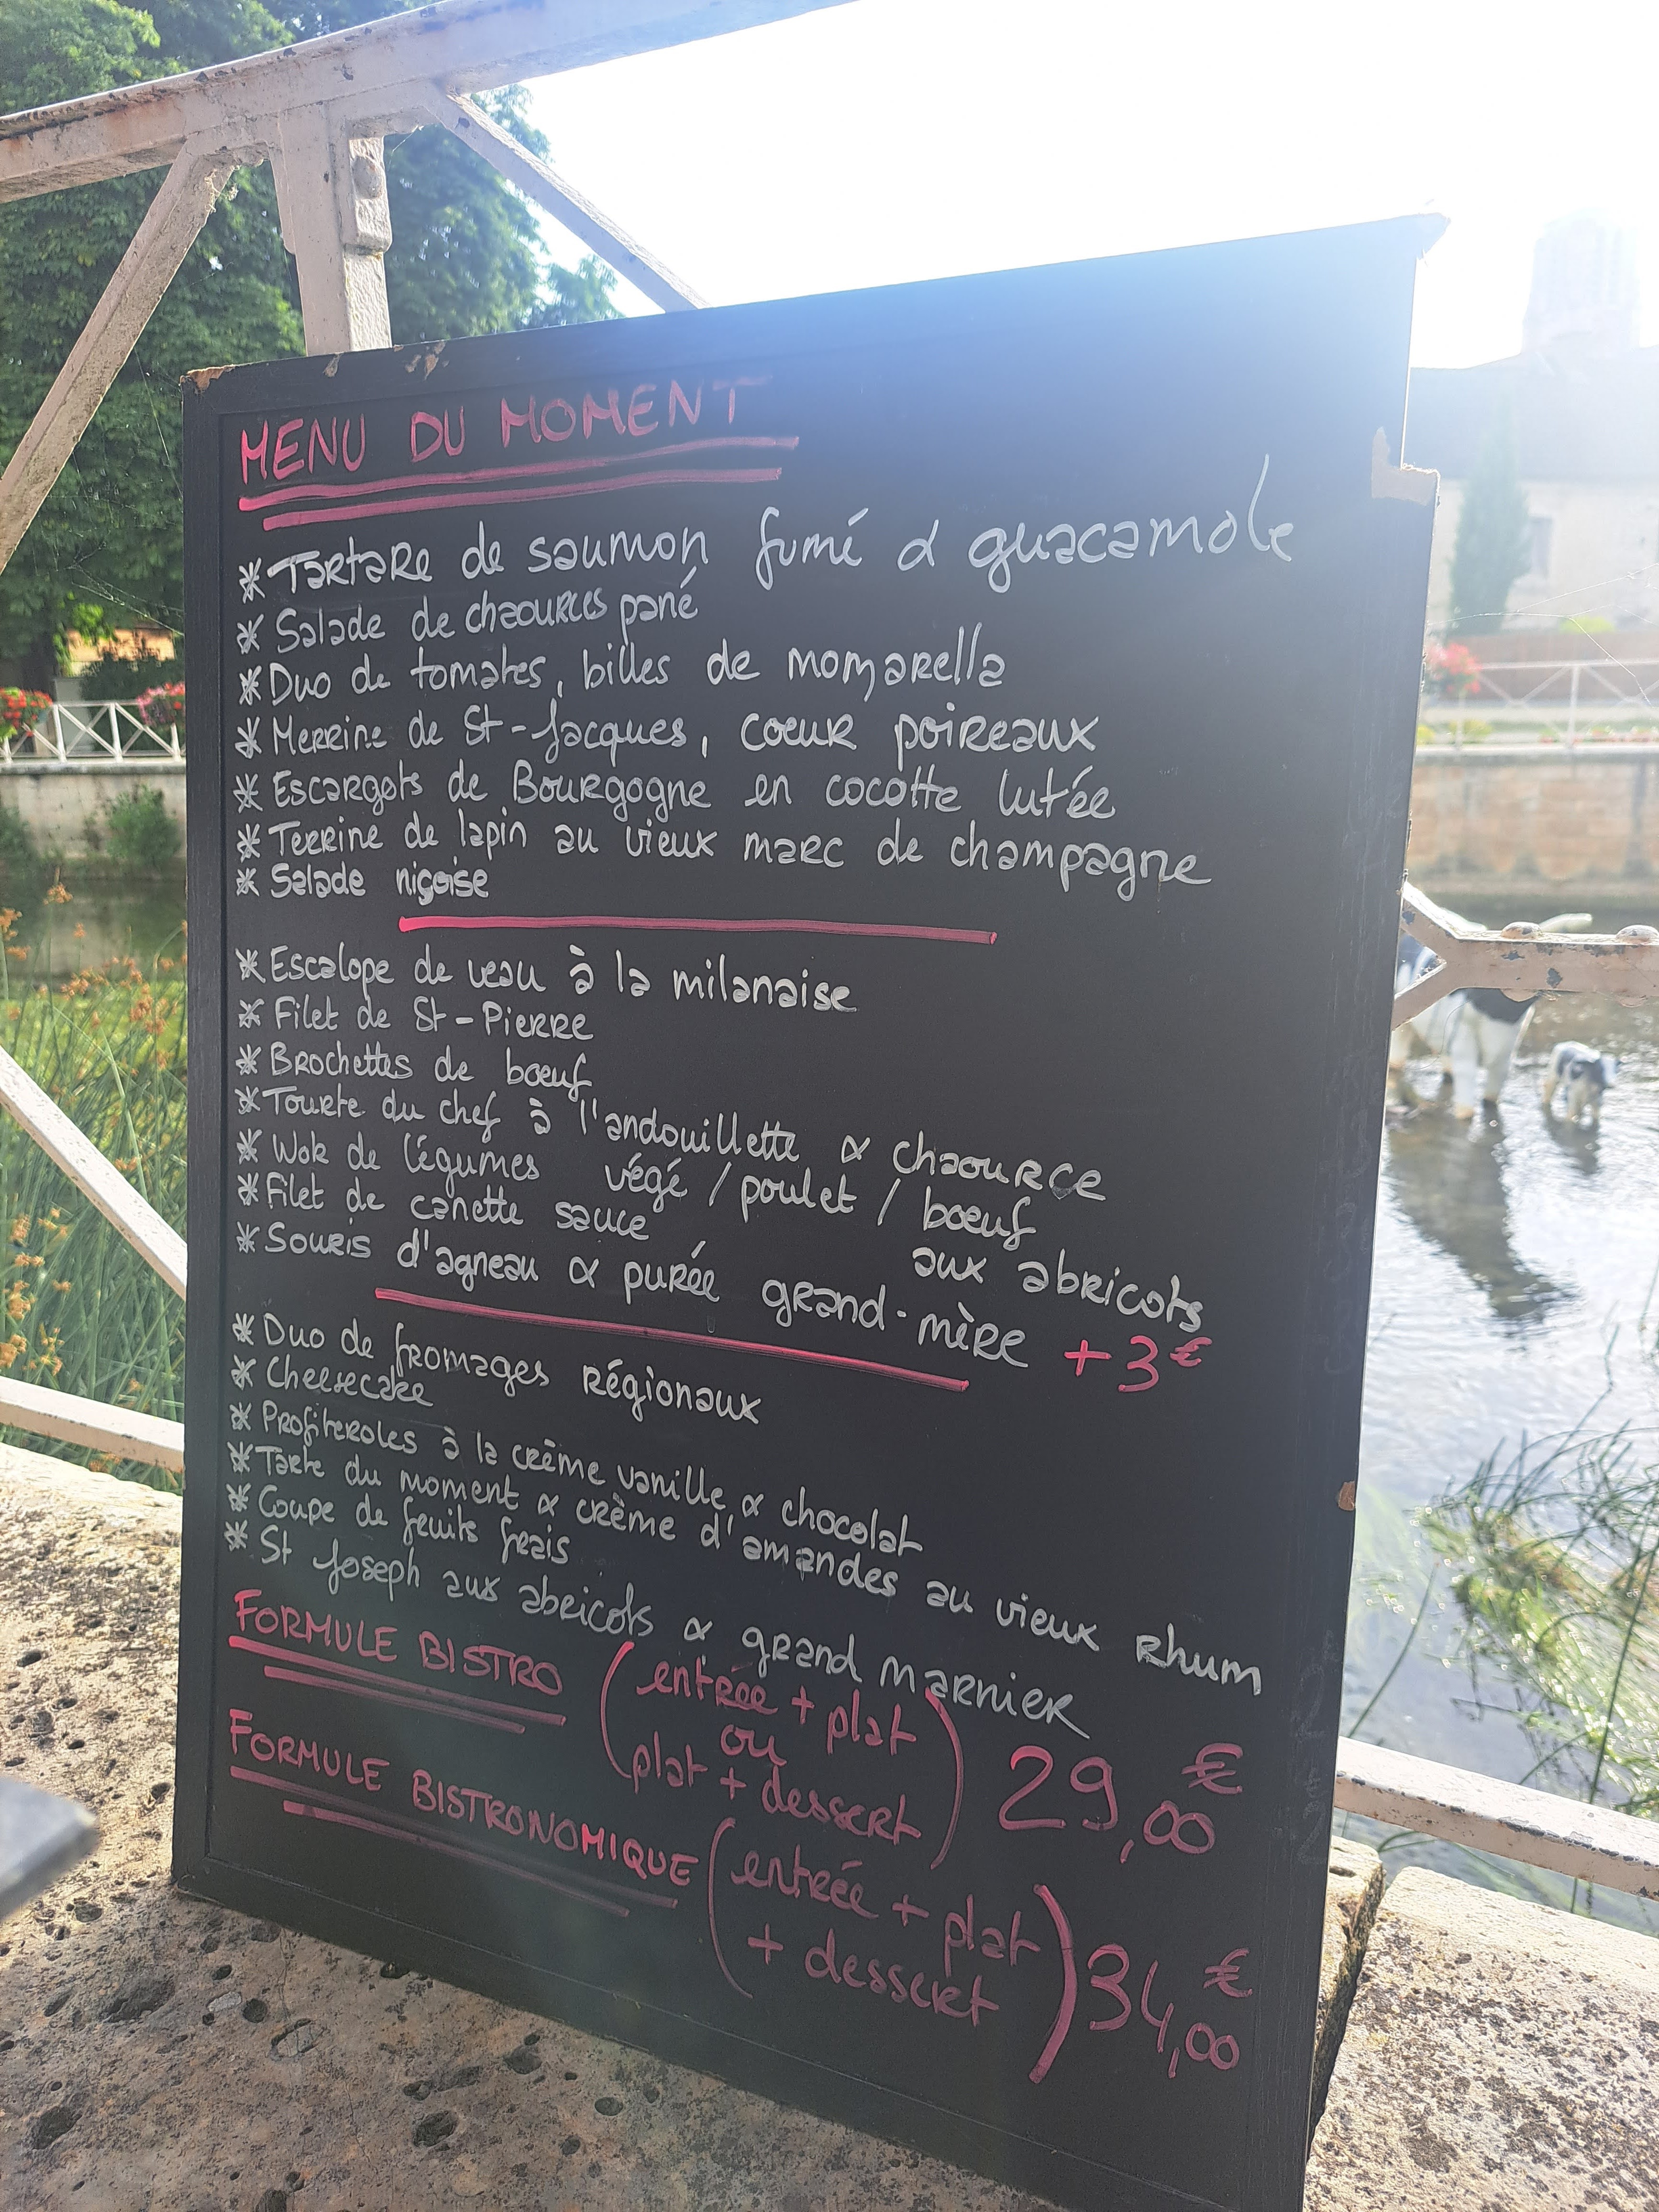 MENU DU MOMENT
* Tartare de saumon fumé & guacamole
* Salade de chaources pané
* Duo de tomates, billes de mozzarella
* Merrine de St-Jacques, coeur poireaux
* Escargots de Bourgogne en cocotte lutée
* Terrine de lapin au vieux marc de champagne
* Salade niçoise
* Escalope de veau à la milanaise
* Filet de St-Pierre
* Brochettes de bœuf
* Tourte du chef à l'andouillette & chaource
* Wok de légumes végé / poulet / bœuf
* Filet de canette sauce aux abricots
* Souris d'agneau & purée grand-mère +3€
* Duo de fromages régionaux
* Cheesecake
* Profiteroles à la crème vanille & chocolat
* Tarte du moment & crème d'amandes au vieux rhum
* Coupe de fruits frais
* St Joseph aux abricots & grand marnier
FORMULE BISTRO (entrée + plat
ou
plat + dessert) 29,00€
FORMULE BISTRONOMIQUE (entrée + plat
+ dessert) 34,00€